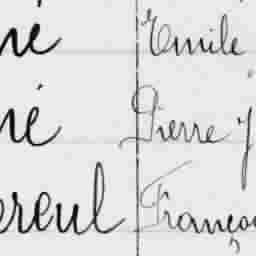 né Emile
né Pierre J
ereul Françoi